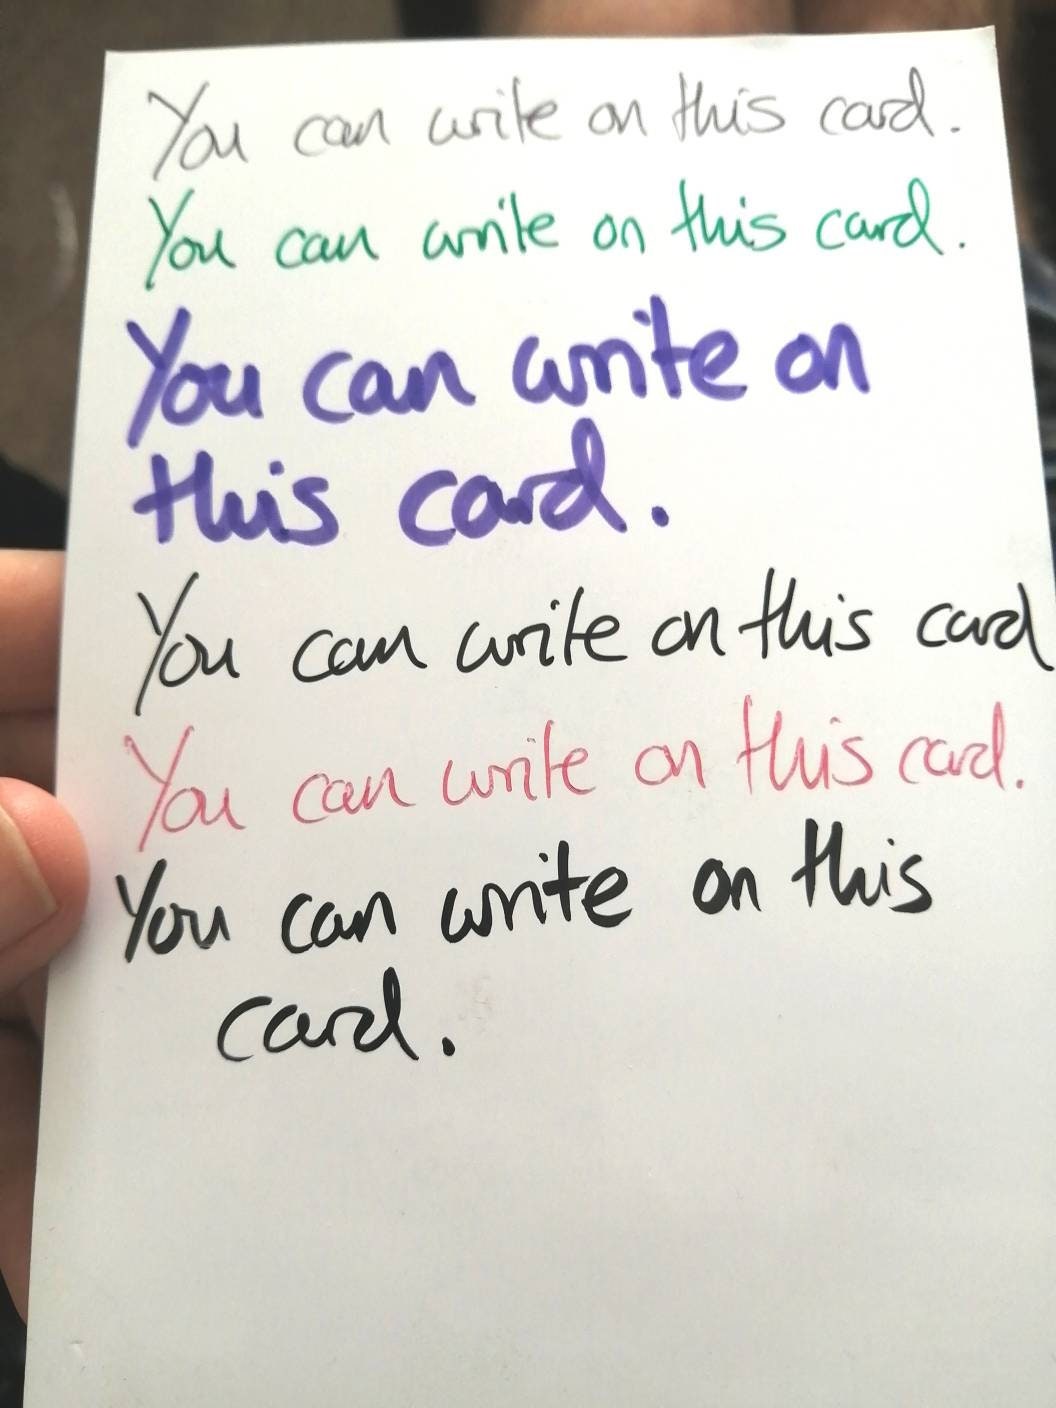 You can write on this card.
You can write on this card.
You can write on
this card.
You can write on this card
You can write on this card.
You can write on this
card.